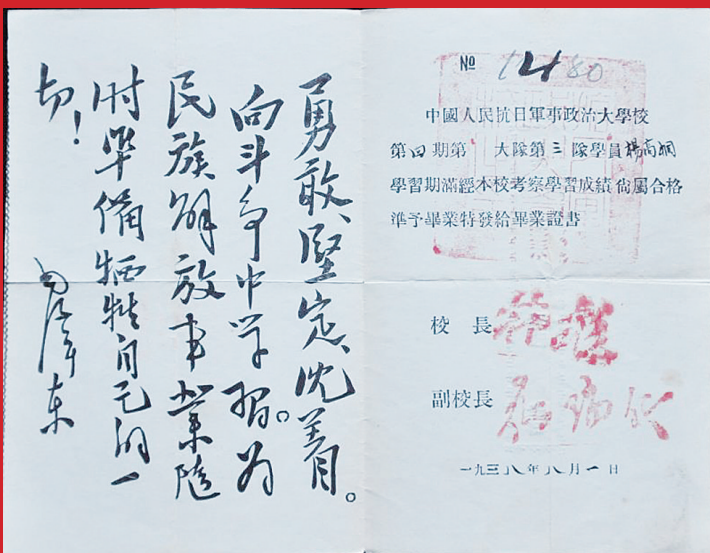 勇敢、堅定、沈着。
向斗争中学習。为
民族解放事業随
时準备牺牲自己的一
切！
毛澤东
№ 1480
中國人民抗日軍事政治大學校
第四期第 大隊第三隊學員楊高
學習期滿經本校考察學習成績尚屬合格
準予畢業特發給畢業證書
校長 林彪
副校長 羅瑞卿
一九三八年八月一日